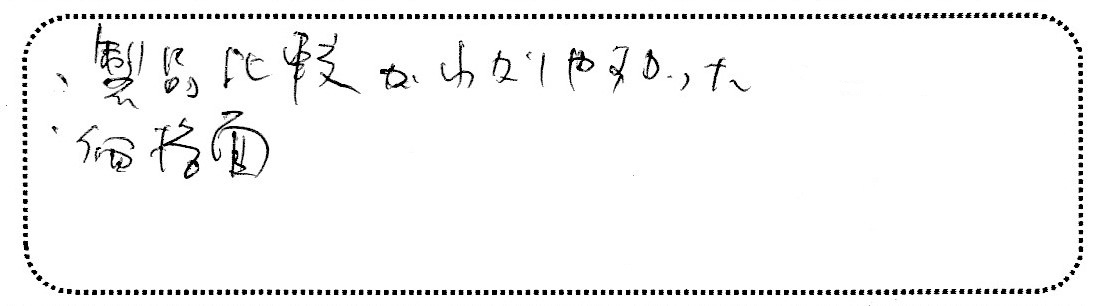 ・製品比較がわかりやすかった
・価格面